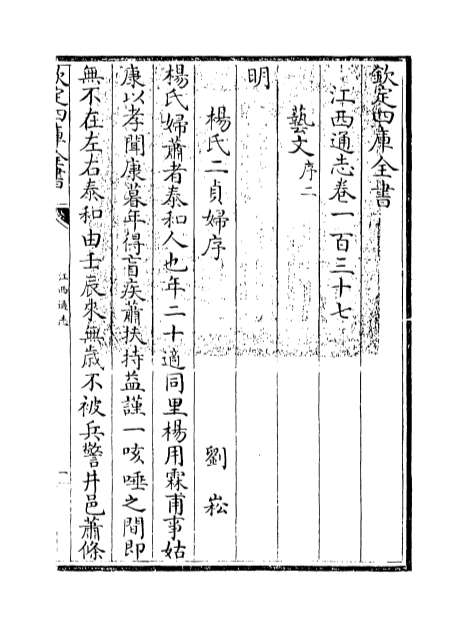 欽定四庫全書
江西通志卷一百三十七
藝文序二
明
楊氏二貞婦序 劉崧
楊氏婦蕭者泰和人也年二十適同里楊用霖甫事姑
康以孝聞康暮年得盲疾蕭扶持益謹一咳唾之間即
無不在左右泰和由壬辰來無歲不被兵警井邑蕭條
欽定四庫全書
江西通志
一